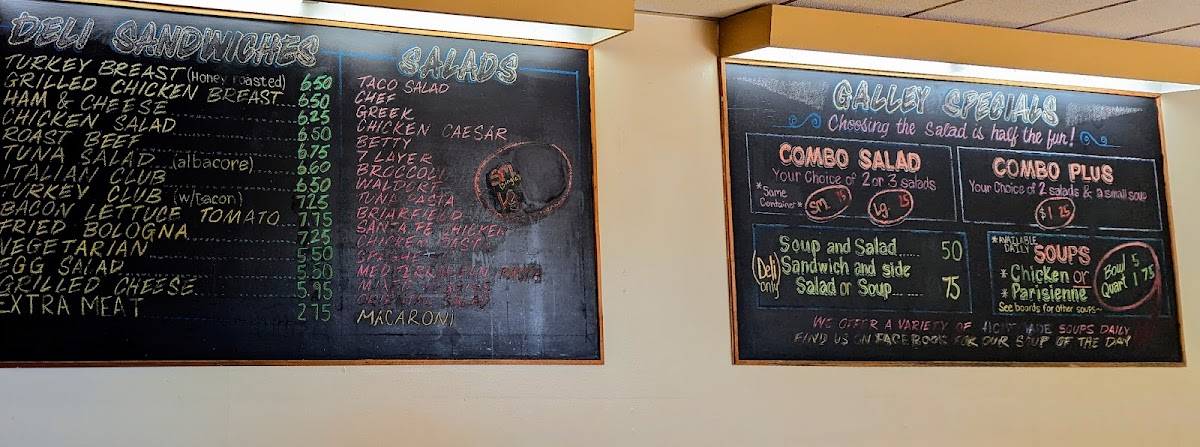 DELI SANDWICHES
TURKEY BREAST (Honey roasted) 6.50
GRILLED CHICKEN BREAST 6.50
HAM & CHEESE 6.25
CHICKEN SALAD 6.50
ROAST BEEF 6.75
TUNA SALAD (albacore) 6.60
ITALIAN CLUB 6.50
TURKEY CLUB (w/bacon) 7.25
BACON LETTUCE TOMATO 7.75
FRIED BOLOGNA 7.25
VEGETARIAN 5.50
EGG SALAD 5.50
GRILLED CHEESE 5.95
EXTRA MEAT 2.75
SALADS
TACO SALAD
CHEF
GREEK
CHICKEN CAESAR
BETTY
7 LAYER
BROCCOLI
WALDORF
TUNA PASTA
BRIARFIELD
SANTA FE CHICKEN
CHICKEN
MACARONI
SM.
Lg.
GALLEY SPECIALS
Choosing the Salad is half the fun!
COMBO SALAD
Your Choice of 2 or 3 salads
*Same Container*
SM.
Lg.
COMBO PLUS
Your Choice of 2 salads & a small soup
$1 25
(Deli only)
Soup and Salad 50
Sandwich and side
Salad or Soup 75
*AVAILABLE DAILY
SOUPS
* Chicken or
* Parisienne
See boards for other soups~
Bowl 5
Quart 1 75
WE OFFER A VARIETY OF SOUPS DAILY
FIND US ON FACEBOOK FOR OUR SOUP OF THE DAY